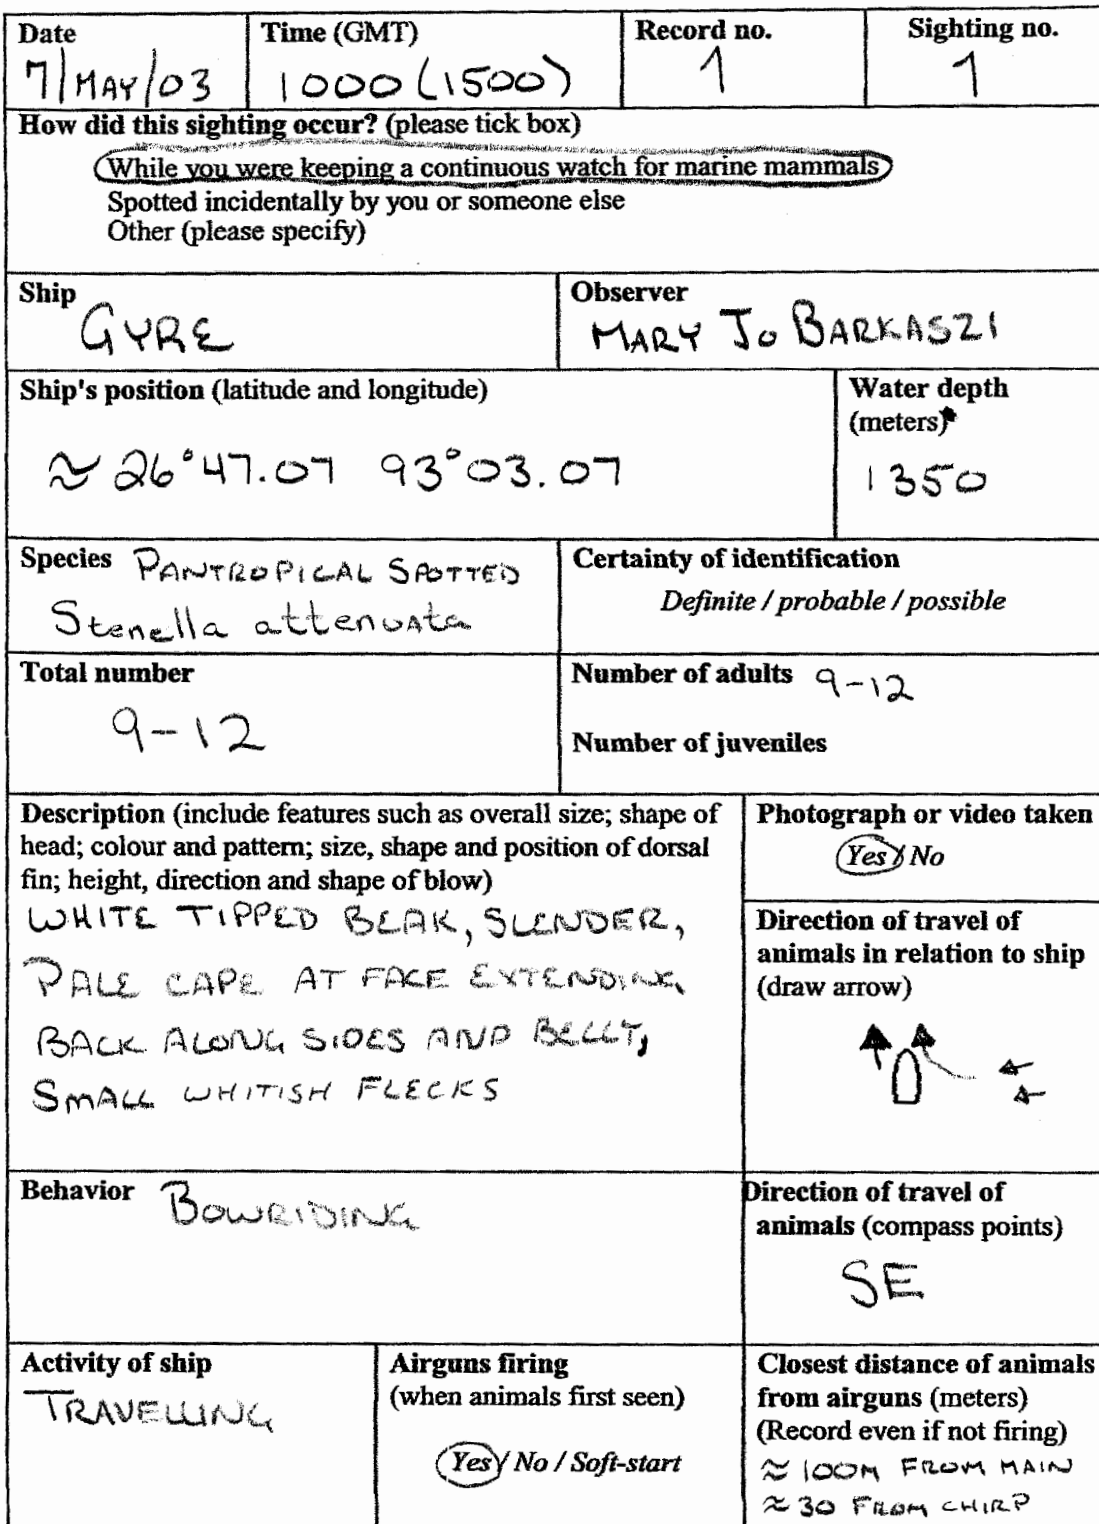 Date
7/MAY/03
Time (GMT)
1000 (1500)
Record no.
1
Sighting no.
1
How did this sighting occur? (please tick box)
While you were keeping a continuous watch for marine mammals
Spotted incidentally by you or someone else
Other (please specify)
Ship
GYRE
Observer
MARY JO BARKASZI
Ship's position (latitude and longitude)
≈ 26°47.07 93°03.07
Water depth
(meters)
1350
Species PANTROPICAL SPOTTED
Stenella attenuata
Certainty of identification
Definite / probable / possible
Total number
9-12
Number of adults 9-12
Number of juveniles
Description (include features such as overall size; shape of
head; colour and pattern; size, shape and position of dorsal
fin; height, direction and shape of blow)
WHITE TIPPED BEAK, SLENDER,
PALE CAPE AT FACE EXTENDING
BACK ALONG SIDES AND BELLY,
SMALL WHITISH FLECKS
Photograph or video taken
Yes / No
Direction of travel of
animals in relation to ship
(draw arrow)
Behavior BOWRIDING
Direction of travel of
animals (compass points)
SE
Activity of ship
TRAVELLING
Airguns firing
(when animals first seen)
Yes / No / Soft-start
Closest distance of animals
from airguns (meters)
(Record even if not firing)
≈ 100M FROM MAIN
≈ 30 FROM CHIRP